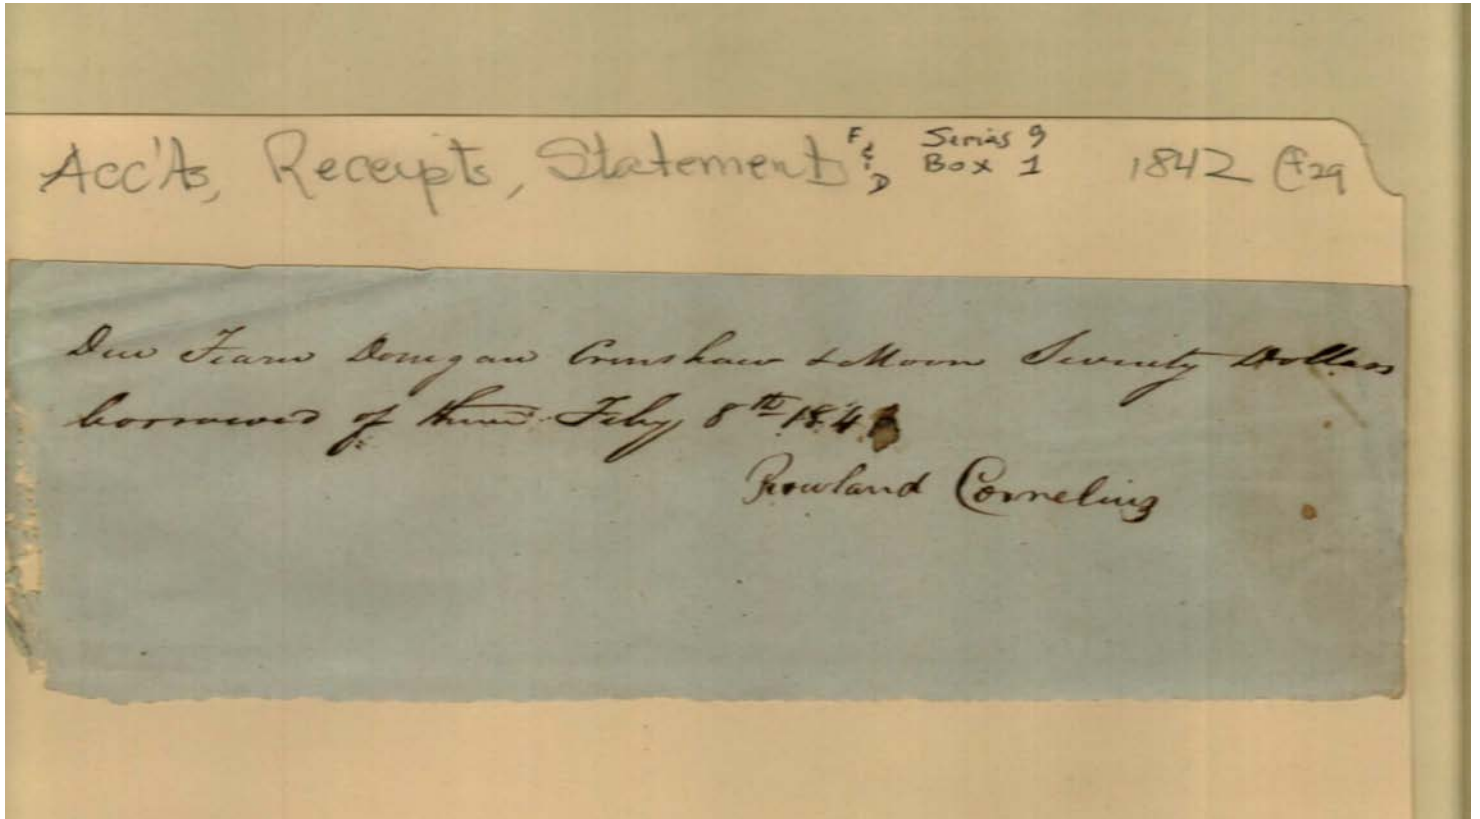 Acc'ts, Receipts, Statements F & D Series 9 Box 1 1842 (f29
Due Fearn Donegan Crenshaw & Moon Seventy Dollars
borrowed of them Feby 8th 184
Rowland Cornelius